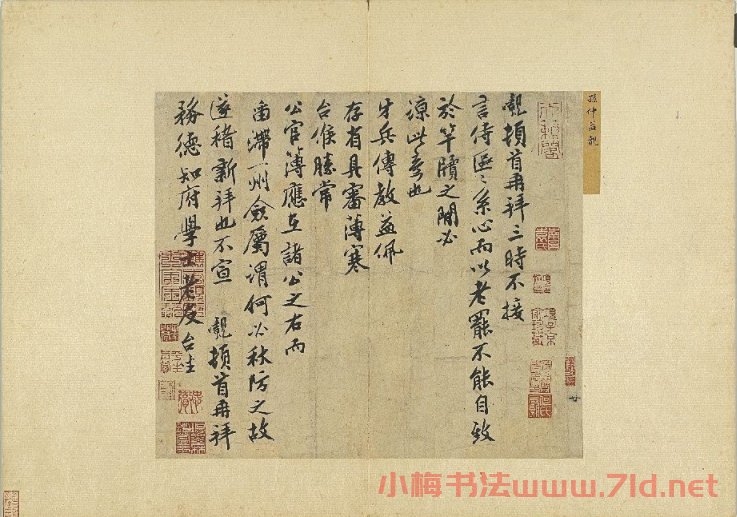 孫仲益覿
覿頓首再拜三時不接
言侍區區系心而以老罷不能自致
於竿牘之間必
諒此意也
牙兵傳教益佩
存有具審薄寒
台候勝常
公官簿應在諸公之右而
留滯一州僉屬謂何必秋防之故
遂稽新拜也不宣 覿頓首再拜
務德知府學士老友台坐
小梅书法www.7ld.net